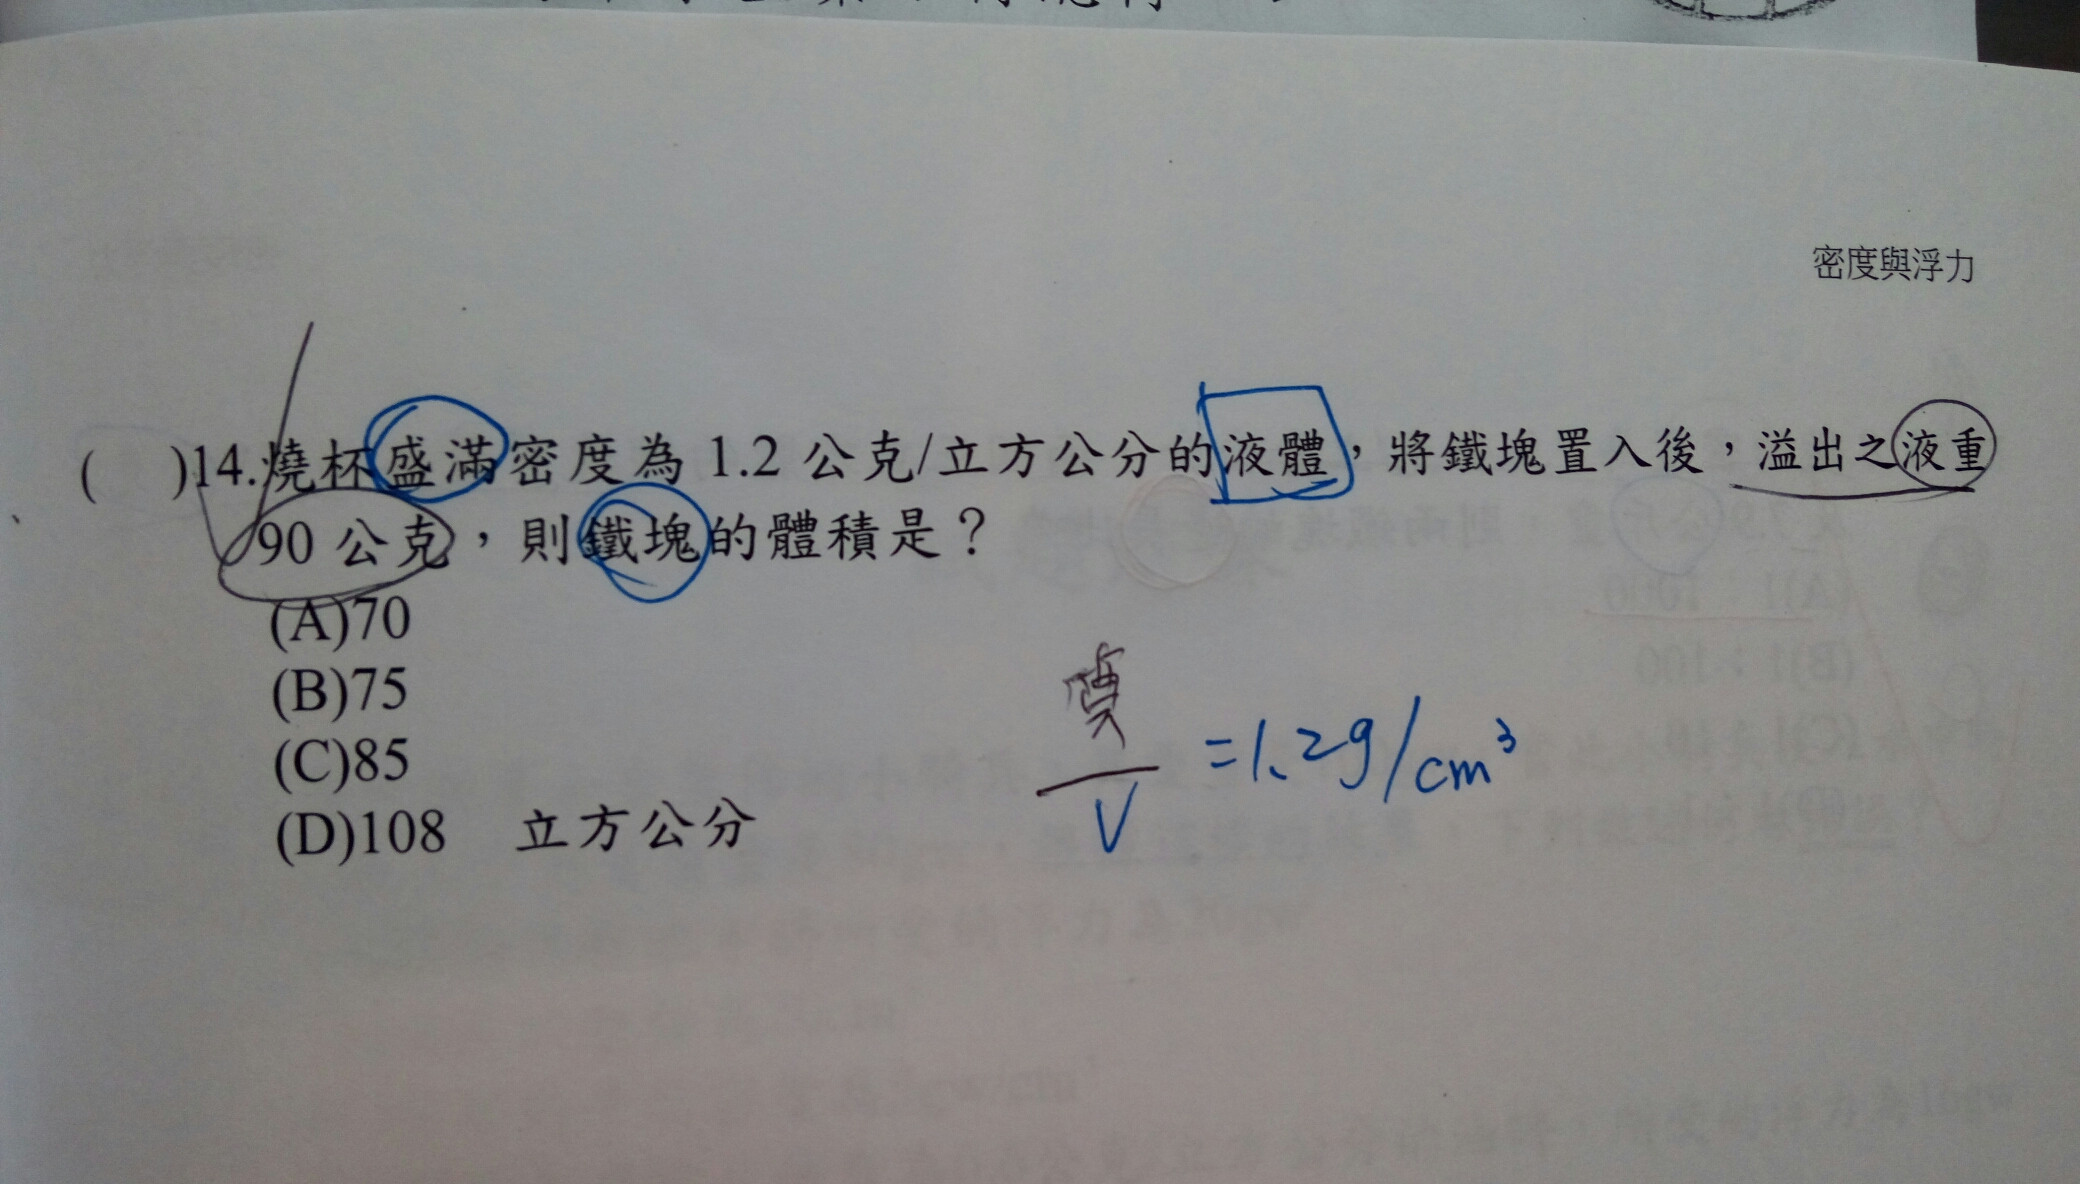 密度與浮力
(　)14.燒杯盛滿密度為 1.2 公克/立方公分的液體，將鐵塊置入後，溢出之液重
90 公克，則鐵塊的體積是？
(A)70
(B)75
(C)85
(D)108　立方公分
質
V
=1.2g/cm³